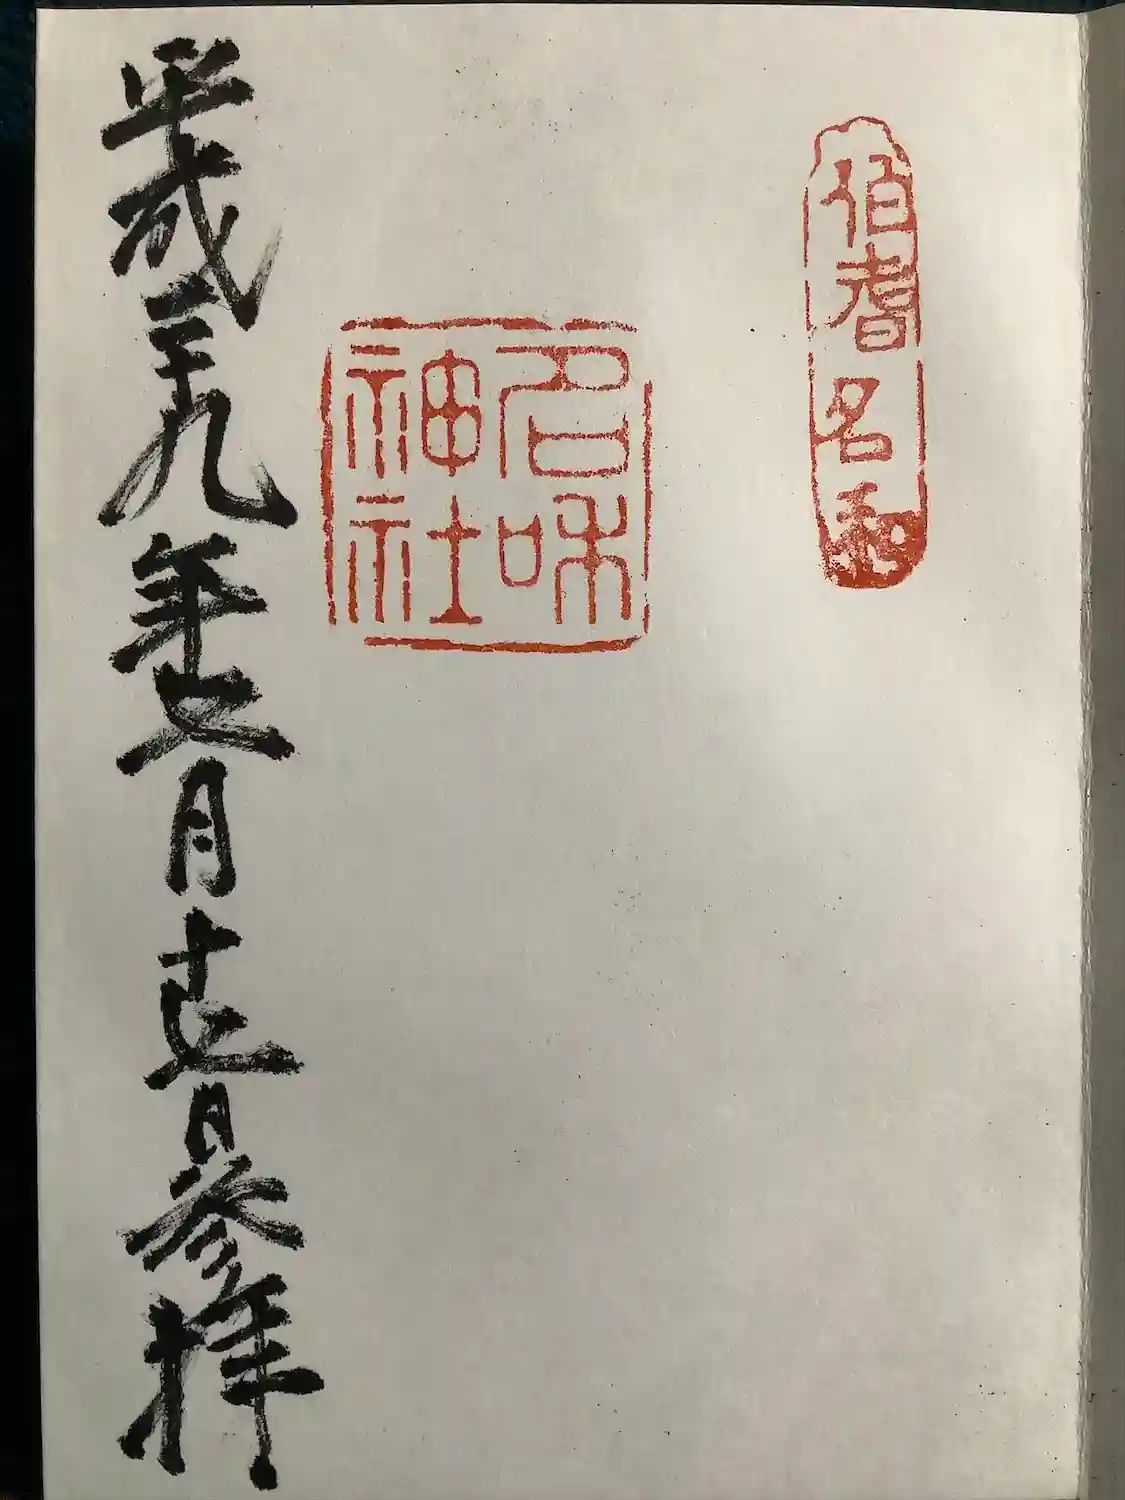 伯耆名和
名和
神社
平成二十九年五月十五日参拝